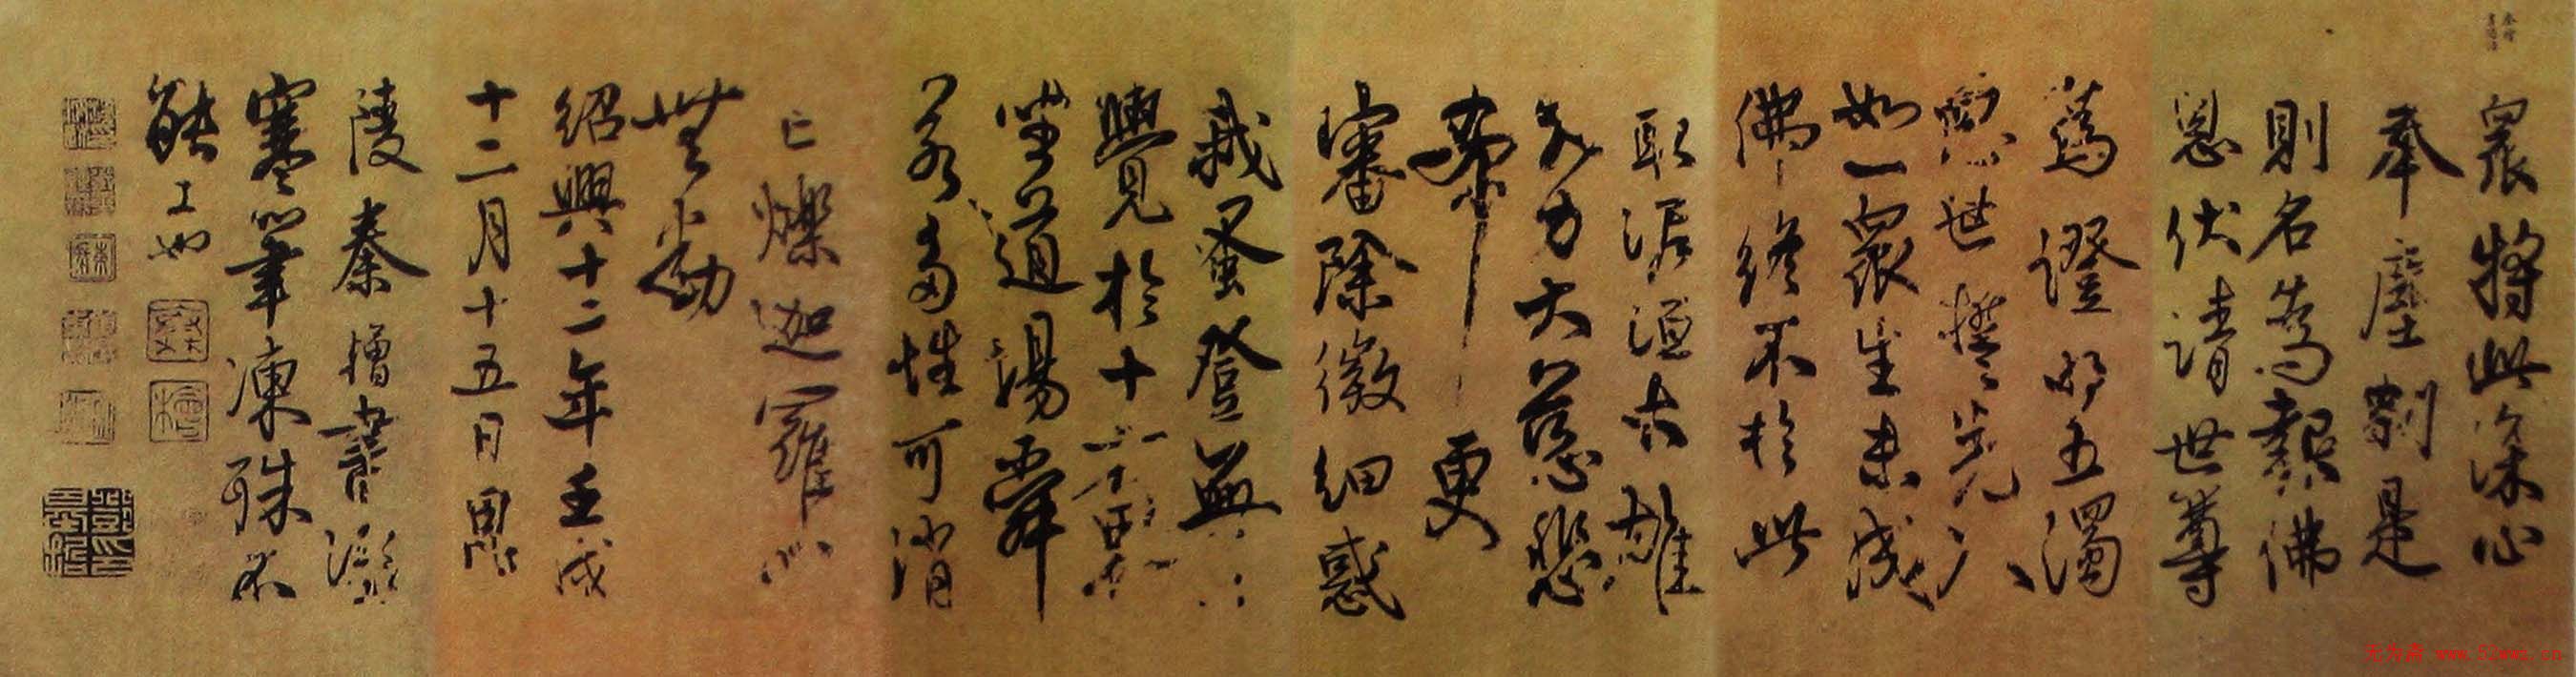 眾將此深心
奉塵剎是
則名為報佛
恩伏請世尊
為證明五濁
惡世誓先入
如一眾生未成
佛終不於此
取泥洹大雄
大力大慈悲
希更
審除微細惑
我蚤登無上
覺於十方界
坐道場舜
若多性可消
亡爍迦羅心
無動
紹興十二年壬戌
十二月十五日
陵秦檜書
寒筆凍殊不
能工也
无为斋 www.52wwz.cn